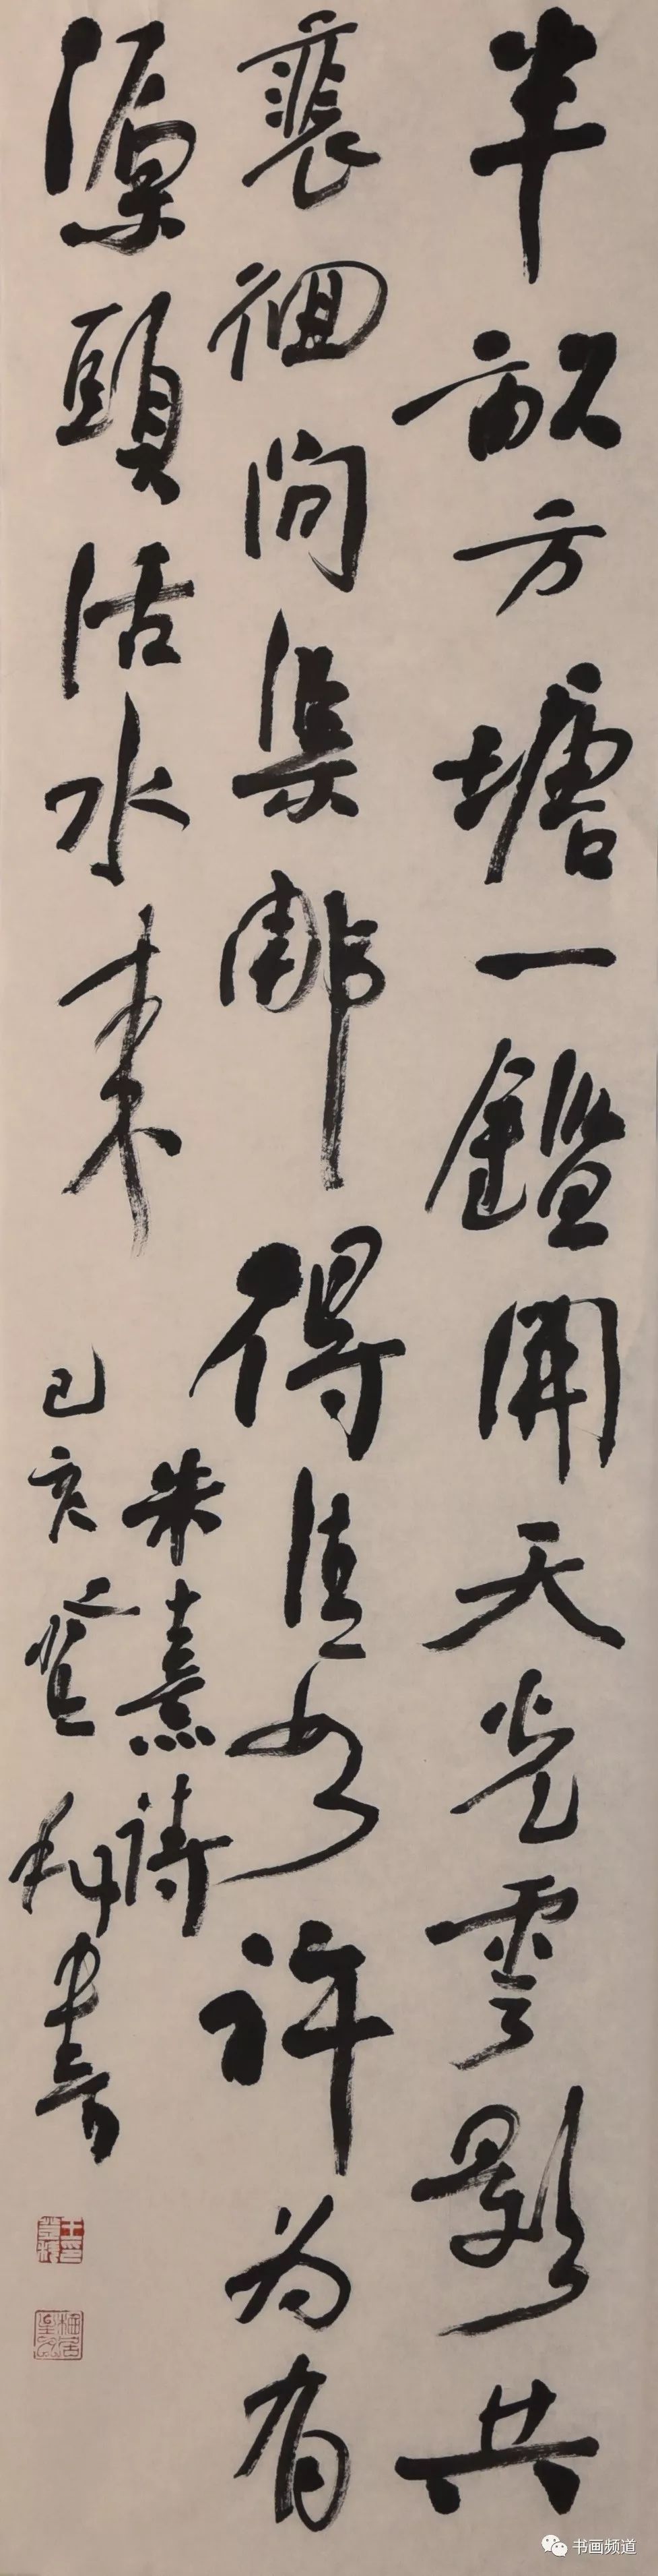 半畝方塘一鑑開天光雲影共
裴徊問渠那得清如許為有
源頭活水来
朱熹詩
己亥登科書
书画频道